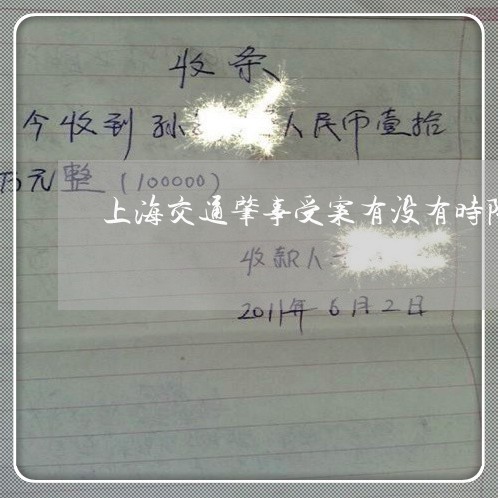 收条
今收到孙 人民币壹拾
万元整（100000）
上海交通肇事受案有没有時限
收款人
2011年6月2日